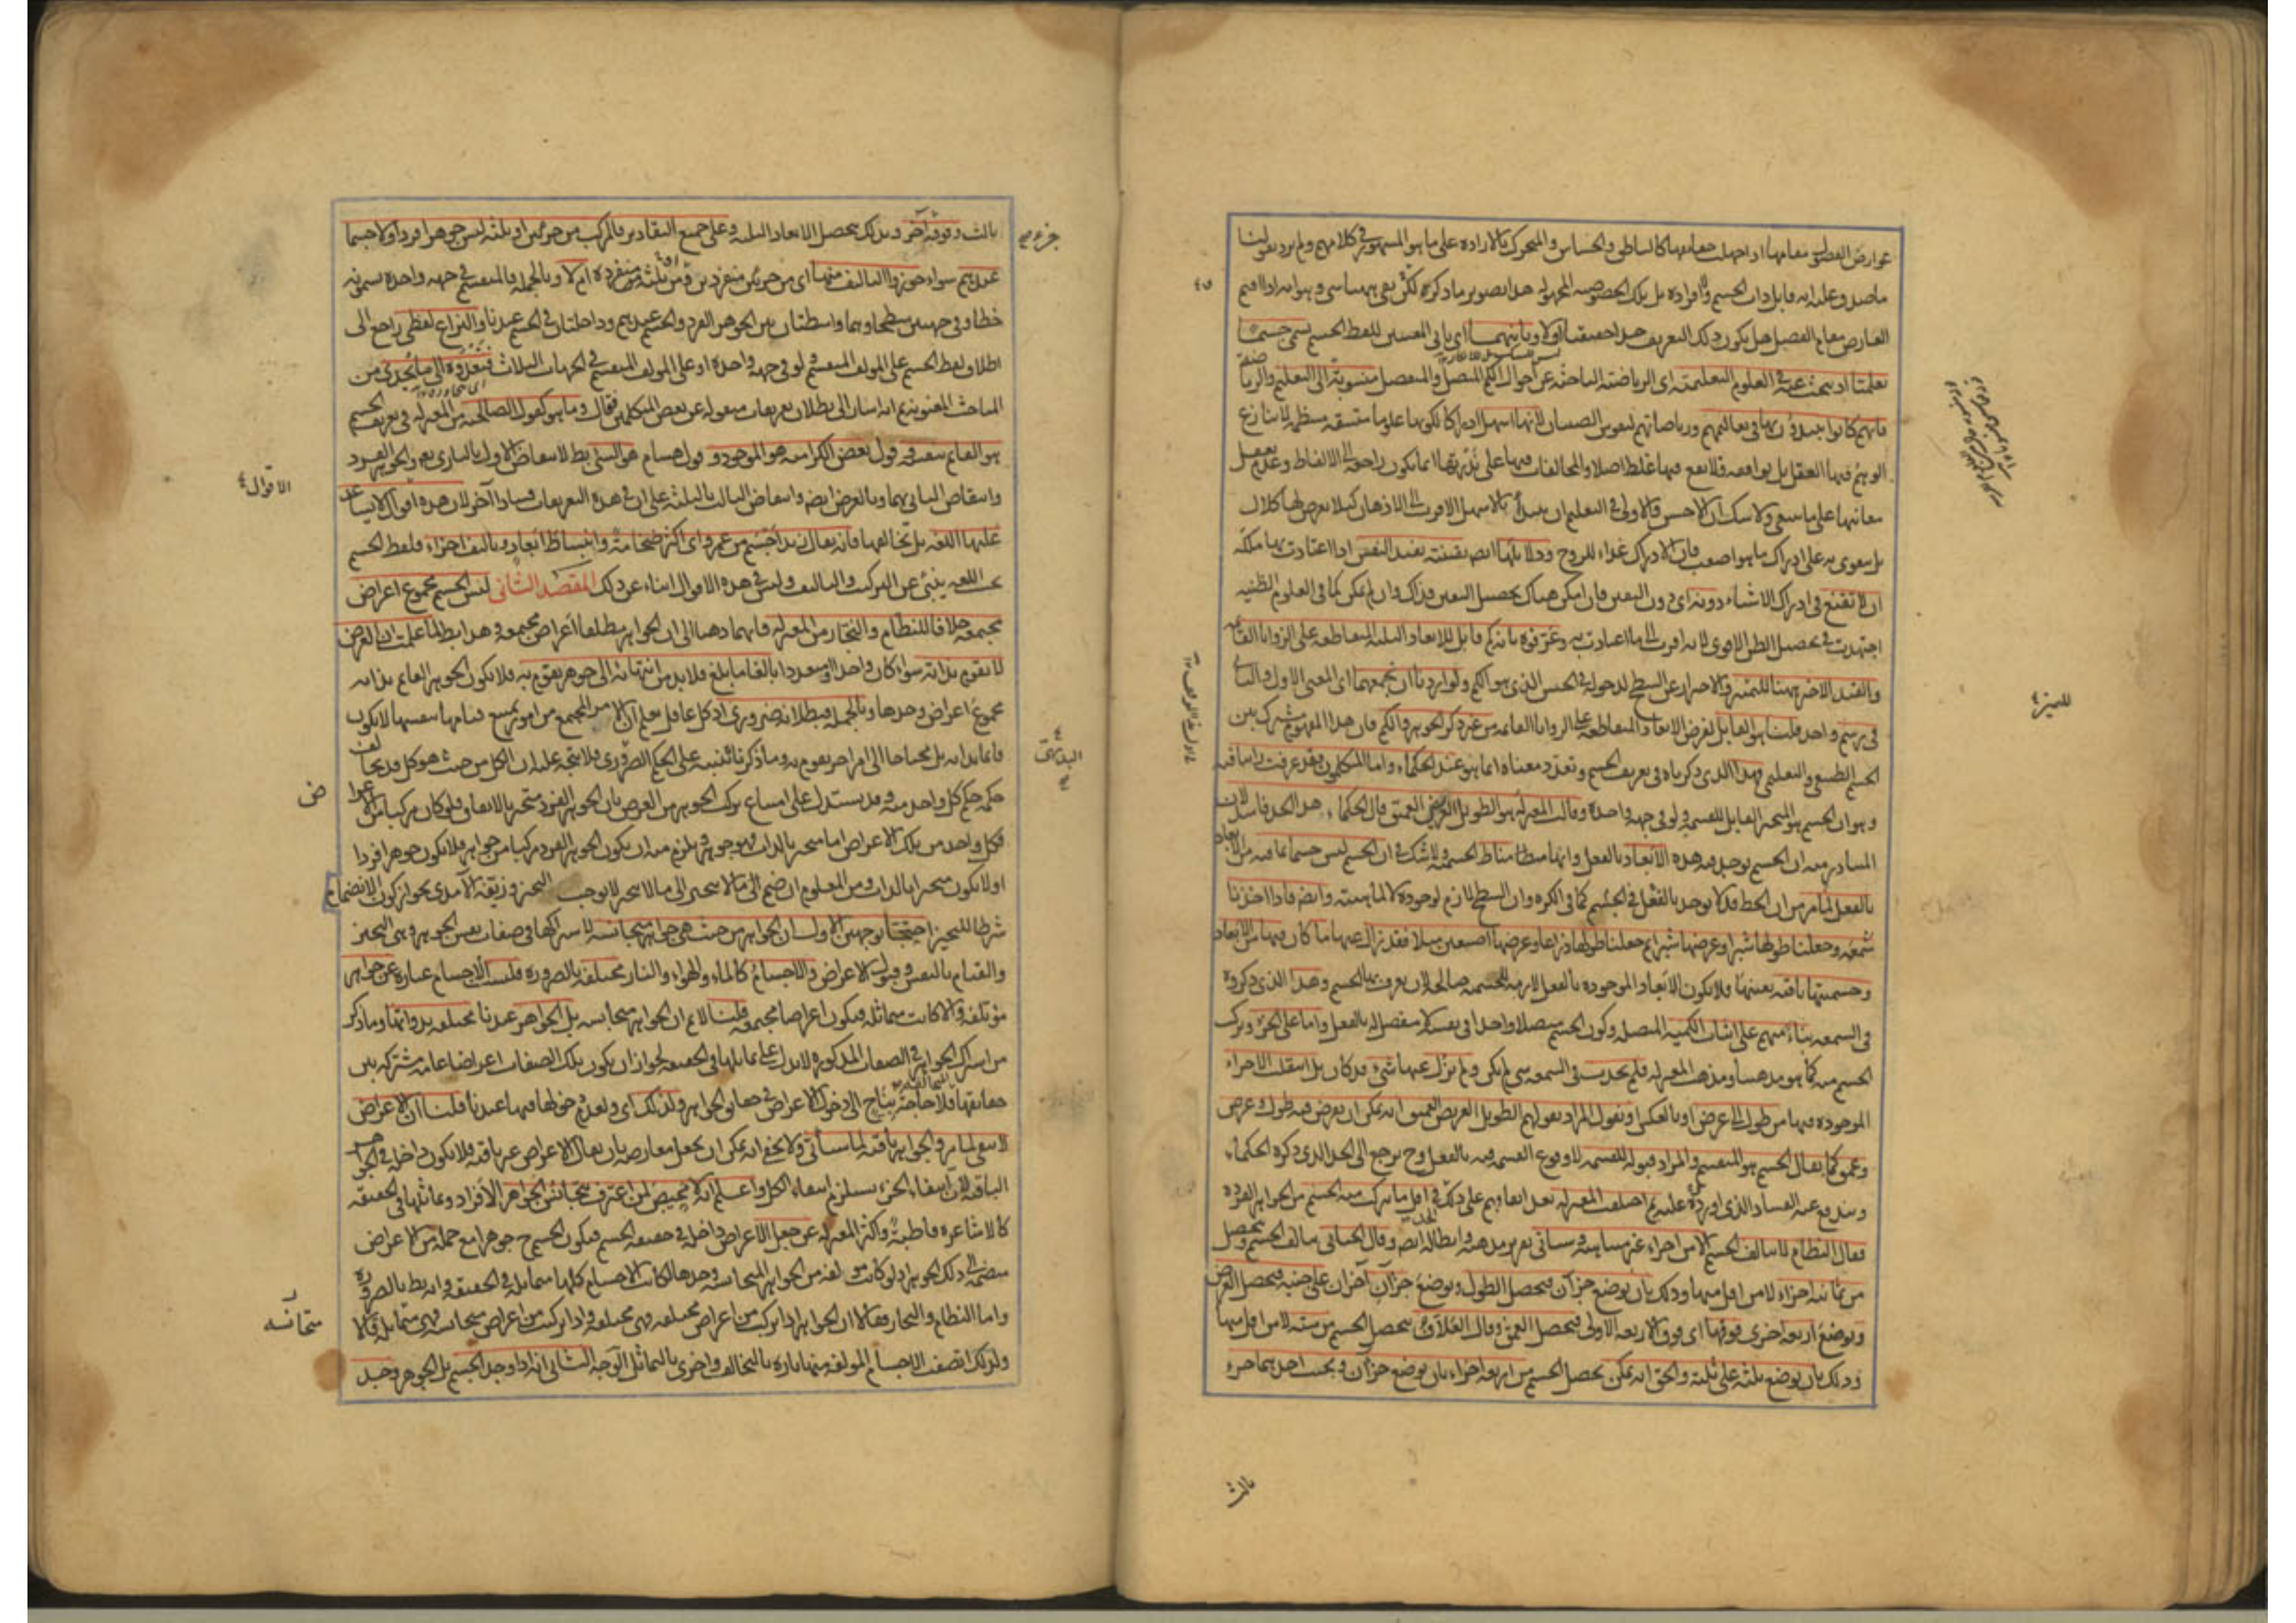 عوارض الفصل مقامها اذ اجهلت حقايقها كالناطق والحساس والمتحرك بالارادة على ما هو المشهور فى كلامهم ولم يرد بقولنا
الفارض مقام الفصل هل يكون ذلك التعريف حدا حقيقيا اولا وثانيهما اى ثانى المعنيين للفظ الجسم يسمى جسما
تعليميا اذ يبحث عنه فى العلوم التعليمية اى الرياضية الباحثة عن احوال الكم المتصل والمنفصل منسوبة الى التعليم والريا
فانهم كانوا يبتدؤن بها فى تعاليمهم ورياضاتهم لنفوس الصبيان لانها اسهل ادراكا لكونها علوما متسقة منتظمة لا ينازع
الوهم فيها العقل بل يوافقه فلا يقع فيها غلط اصلا والمخالفات فيها على ندرتها انما يكون راجعة الى الالفاظ وعدم تعقل
معانيها على ما ينبغى ولا شك ان الاحسن والاولى فى التعليم ان يبتدأ بالاسهل الاقرب الى الاذهان
بل يتقوى به على ادراك ما هو اصعب فان الادراك غذاء للروح ودلائلها ايض يقينية تفيد النفس اذا اعتادت بها ملكة
ان لا تقنع فى ادراك الاشياء دونه اى دون اليقين فان امكن هناك تحصيل اليقين فذاك وان لم يمكن كما فى العلوم الظنية
اجتهدت فى تحصيل الظن الاقوى لانه اقرب الى ما اعتادت به وعرفوه بانه كم قابل للابعاد الثلثة المتقاطعة على الزوايا القائمة
والقيد الاخير ههنا للتمييز والاحتراز عن السطح لدخوله فى الجنس الذى هو الكم ولو اردنا ان نجمعهما اى المعنى الاول والثانى
فى رسم واحد قلنا هو القابل لفرض الابعاد المتقاطعة على الزوايا القائمة من غير ذكر الجوهر والكم فان هذا المفهوم مشترك بين
الجسم الطبيعى والتعليمى وهذا الذى ذكرناه فى تعريف الجسم وتعدد معناه انما هو عند الحكماء واما المتكلمون فقد عرفت
وهو ان الجسم هو المتحيز القابل للقسمة ولو فى جهة واحدة وقالت المعتزلة هو الطويل العريض العميق قال الحكماء هذا الحد فاسد لان
المتبادر منه ان الجسم يوجد فيه هذه الابعاد بالفعل وانها مناط الجسمية ولا شك فى ان الجسم ليس جسما بما فيه من الابعاد
بالفعل لما مر من ان الخط قد لا يوجد بالفعل فى الجسم كما فى الكرة وان السطح لازم لوجوده لا لماهيته وايض فاذا اخذنا
شمعة وجعلنا طولها شبرا وعرضها شبرا ثم جعلنا طولها ذراعا وعرضها اصبعين مثلا فقد زال عنها ما كان فيها من الابعاد
وجسميتها باقية بعينها فلا يكون الابعاد الموجودة بالفعل لازمة للجسمية صالحة لان يعرف بها الجسم وهذا الذى ذكروه
فى الشمعة بناء منهم على اثبات الكمية المتصلة وكون الجسم متصلا واحدا فى نفسه لا مفصل له بالفعل واما على الجزء وتركب
الجسم منه كما هو مذهبنا ومذهب المعتزلة فلم يحدث فى الشمعة شئ لم يكن ولم يزل عنها شئ قد كان بل انتقلت الاجزاء
الموجودة فيها من طول الى عرض او بالعكس او نقول المراد بقولهم الطويل العريض العميق انه يمكن ان يفرض فيه طول وعرض
وعمق كما يقال الجسم هو المنقسم والمراد قبوله للقسمة لا وقوع القسمة فيه بالفعل وح يرجع الى الحد الذى ذكره الحكماء
ويندفع عنه الفساد الذى اوردوه عليه ثم اختلفت المعتزلة بعد اتفاقهم على ذلك فى اقل ما يتركب منه الجسم من الجواهر الفردة
فقال النظام لا يتألف الجسم الا من اجزاء غير متناهية وسيأتى تقرير مذهبه وابطاله ايض وقال الجبائى يتألف الجسم ويحصل
من ثمانية اجزاء لا من اقل منها وذلك بان يوضع جزآن فيحصل الطول ويوضع جزآن آخران على جنبه فيحصل العرض
ويوضع اربعة اخرى فوقها اى فوق الاربعة الاولى فيحصل العمق وقال العلاف يحصل الجسم من ستة لا من اقل منها
وذلك بان يوضع ثلثة على ثلثة والحق انه يمكن تحصل الجسم من اربعة اجزاء بان يوضع جزآن وبجنب احدهما جزء
ثالث
للتميز
ثالث وفوقه آخر وبذلك يحصل الابعاد الثلثة وعلى جميع التقادير فالمركب من جزئين او ثلثة ليس جوهرا فردا ولا جسما
عندهم سواء جوزوا التأليف منها اى من جزئين منفردين ومن ثلثة منفردة ام لا وبالجملة فالمنقسم فى جهة واحدة يسمونه
خطا وفى جهتين سطحا وهما واسطتان بين الجوهر الفرد والجسم عندهم وداخلتان فى الجسم عندنا والنزاع لفظى راجع الى
اطلاق لفظ الجسم على المؤلف المنقسم ولو فى جهة واحدة او على المؤلف المنقسم فى الجهات الثلاث فنعدوه الى ما يجدى من
المباحث المعنوية ثم انه اشار الى بطلان تعريفات منقولة عن بعض المتكلمين فقال وما هو كقول الصالحية من المعتزلة فى تعريف الجسم
هو القائم بنفسه وقول بعض الكرامية هو الموجود وقول هشام هو الشئ بط لانتقاض الاول بالبارى تع والجوهر الفرد
وانتقاض الثانى بهما وبالعرض ايض وانتقاض الثالث بالثلثة على ان فى هذه التعريفات فسادا آخر لان هذه اقوال لا يساعد
عليها اللغة بل تخالفها فانه يقال زيد اجسم من عمرو اى اكثر ضخامة وانبساط ابعاد وتأليف اجزاء فلفظ الجسم
بحسب اللغة ينبئ عن التركيب والتأليف وليس فى هذه الاقوال انباء عن ذلك المقصد الثانى ليس الجسم مجموع اعراض
مجتمعة خلافا للنظام والنجار من المعتزلة فانهما ذهبا الى ان الجواهر مطلقا اعراض مجتمعة وهذا بط لما علمت ان العرض
لا يقوم بذاته سواء كان واحدا او متعددا بالغا ما بلغ فلا بد من انتهائه الى جوهر يقوم به فلا يكون الجوهر القائم بذاته
مجموع اعراض وحدها وبالجملة فبطلانه ضرورى اذ كل عاقل يعلم ان الامر المجتمع من امور يمتنع قيامها بنفسها لا يكون
قائما بذاته بل محتاجا الى امر آخر يقوم به وما ذكرنا تنبيه على الحكم الضرورى فلا يتجه عليه ان الكل من حيث هو كل قد يخالف
حكمه حكم كل واحد منه وقد يستدل على امتناع تركب الجوهر من العرض بان الجوهر الفرد متحيز بالاتفاق فلو كان مركبا من الاعراض
فكل واحد من تلك الاعراض اما متحيز بالذات فهو جوهر فيلزم منه ان يكون الجوهر الفرد مركبا من جواهر فلا يكون جوهرا فردا
او لا يكون متحيزا بالذات ومن المعلوم ان ضم ما لا يتحيز الى ما لا يتحيز لا يوجب التحيز وزيفه الآمدى بجواز كون الانضمام
شرطا للتحيز احتجا بوجهين الاول ان الجواهر من حيث هى جواهر متجانسة لاشتراكها فى صفات نفس الجوهر وهى التحيز
والقيام بالنفس وقبول الاعراض والاجسام كالماء والهواء والنار مختلفة بالضرورة فليست الاجسام عبارة عن جواهر
مؤتلفة والا كانت متماثلة فيكون اعراضا مجتمعة قلنا لا نم ان الجواهر متجانسة بل الجواهر عندنا مختلفة بذواتها وما ذكر
من اشتراك الجواهر فى الصفات المذكورة لا يدل على تماثلها فى الحقيقة لجواز ان يكون تلك الصفات اعراضا عامة مشتركة بين
لا تبقى لما مر والجواهر باقية لما سيأتى ولا يخفى انه يمكن ان يجعل معارضة بان يقال الاعراض غير باقية فلا يكون داخلة فى الجواهر
الباقية لان انتفاء الجزء يستلزم انتفاء الكل واعلم انه لا محيص لمن اعترف بتجانس الجواهر الافراد وتماثلها فى الحقيقة
كالاشاعرة قاطبة واكثر المعتزلة عن جعل الاعراض داخلة فى حقيقة الجسم فيكون الجسم ح جوهرا مع جملة من الاعراض
منضمة الى ذلك الجوهر اذ لو كانت مؤلفة من الجواهر المتجانسة وحدها لكانت الاجسام كلها متماثلة فى الحقيقة وانه بط بالضرورة
واما النظام والنجار فقالا ان الجواهر اذا تركبت من اعراض مختلفة فهى مختلفة واذا تركبت من اعراض متجانسة فهى متماثلة
ولذلك اتصف الاجسام المؤلفة منها تارة بالتخالف واخرى بالتماثل الوجه الثانى انه اذا وجد الجسم بل الجوهر وجد
الاقوال
متجانسة